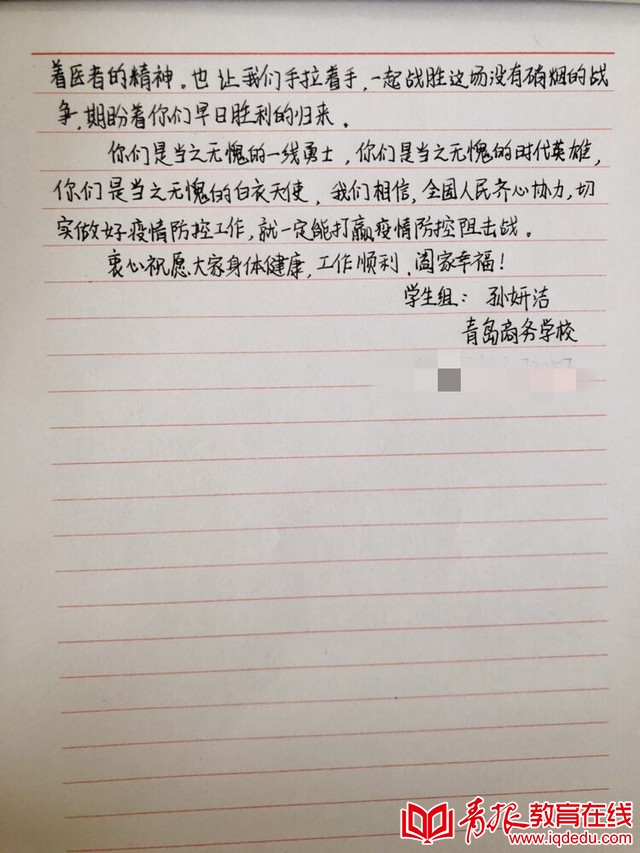 着医者的精神。也让我们手拉着手,一起战胜这场没有硝烟的战
争,期盼着你们早日胜利的归来。
你们是当之无愧的一线勇士,你们是当之无愧的时代英雄,
你们是当之无愧的白衣天使,我们相信,全国人民齐心协力,切
实做好疫情防控工作,就一定能打赢疫情防控阻击战。
衷心祝愿大家身体健康,工作顺利,阖家幸福!
学生组:孙妍洁
青岛商务学校
青报教育在线
www.iqdedu.com